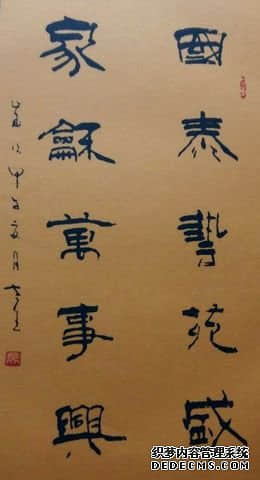 國泰藝苑盛
家龢萬事興
歲次甲午
织梦内容管理系统
DEDECMS.COM